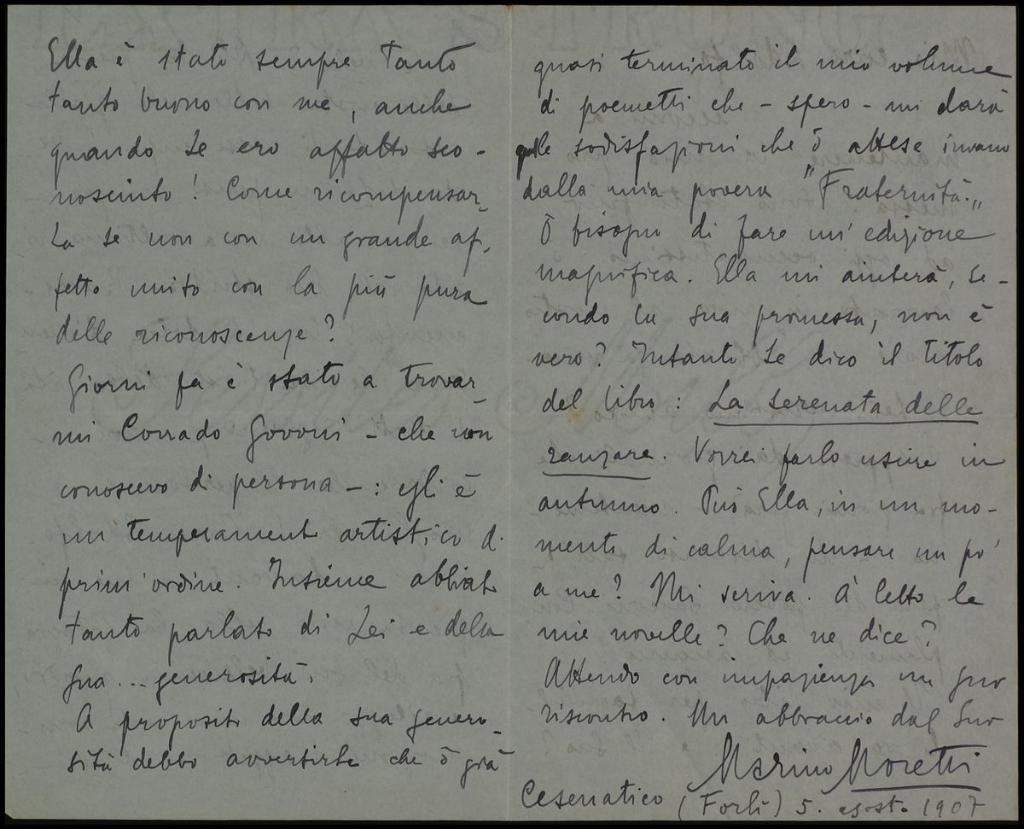 Ella è stato sempre tanto
tanto buono con me, anche
quando Le ero affatto sco-
nosciuto! Come ricompensar-
La se non con un grande af-
fetto unito con la più pura
delle riconoscenze?
Giorni fa è stato a trovar-
mi Corrado Govoni - che non
conoscevo di persona -: egli è
un temperamento artistico di
prim'ordine. Insieme abbiamo
tanto parlato di Lei e della
Sua... generosità.
A proposito della sua genero-
sità debbo avvertirLe che ò già
quasi terminato il mio volume
di poemetti che - spero - mi darà
quelle sodisfazioni che ò attese invano
dalla mia povera "Fraternità„.
Ò bisogno di fare un'edizione
magnifica. Ella mi aiuterà, se-
condo la sua promessa, non è
vero? Intanto Le dico il titolo
del libro: La serenata delle
zanzare. Vorrei farlo uscire in
autunno. Può Ella, in un mo-
mento di calma, pensare un po'
a me? Mi scriva. À letto le
mie novelle? Che ne dice?
Attendo con impazienza un suo
riscontro. Un abbraccio dal Suo
Marino Moretti
Cesenatico (Forlì) 5. agosto 1907